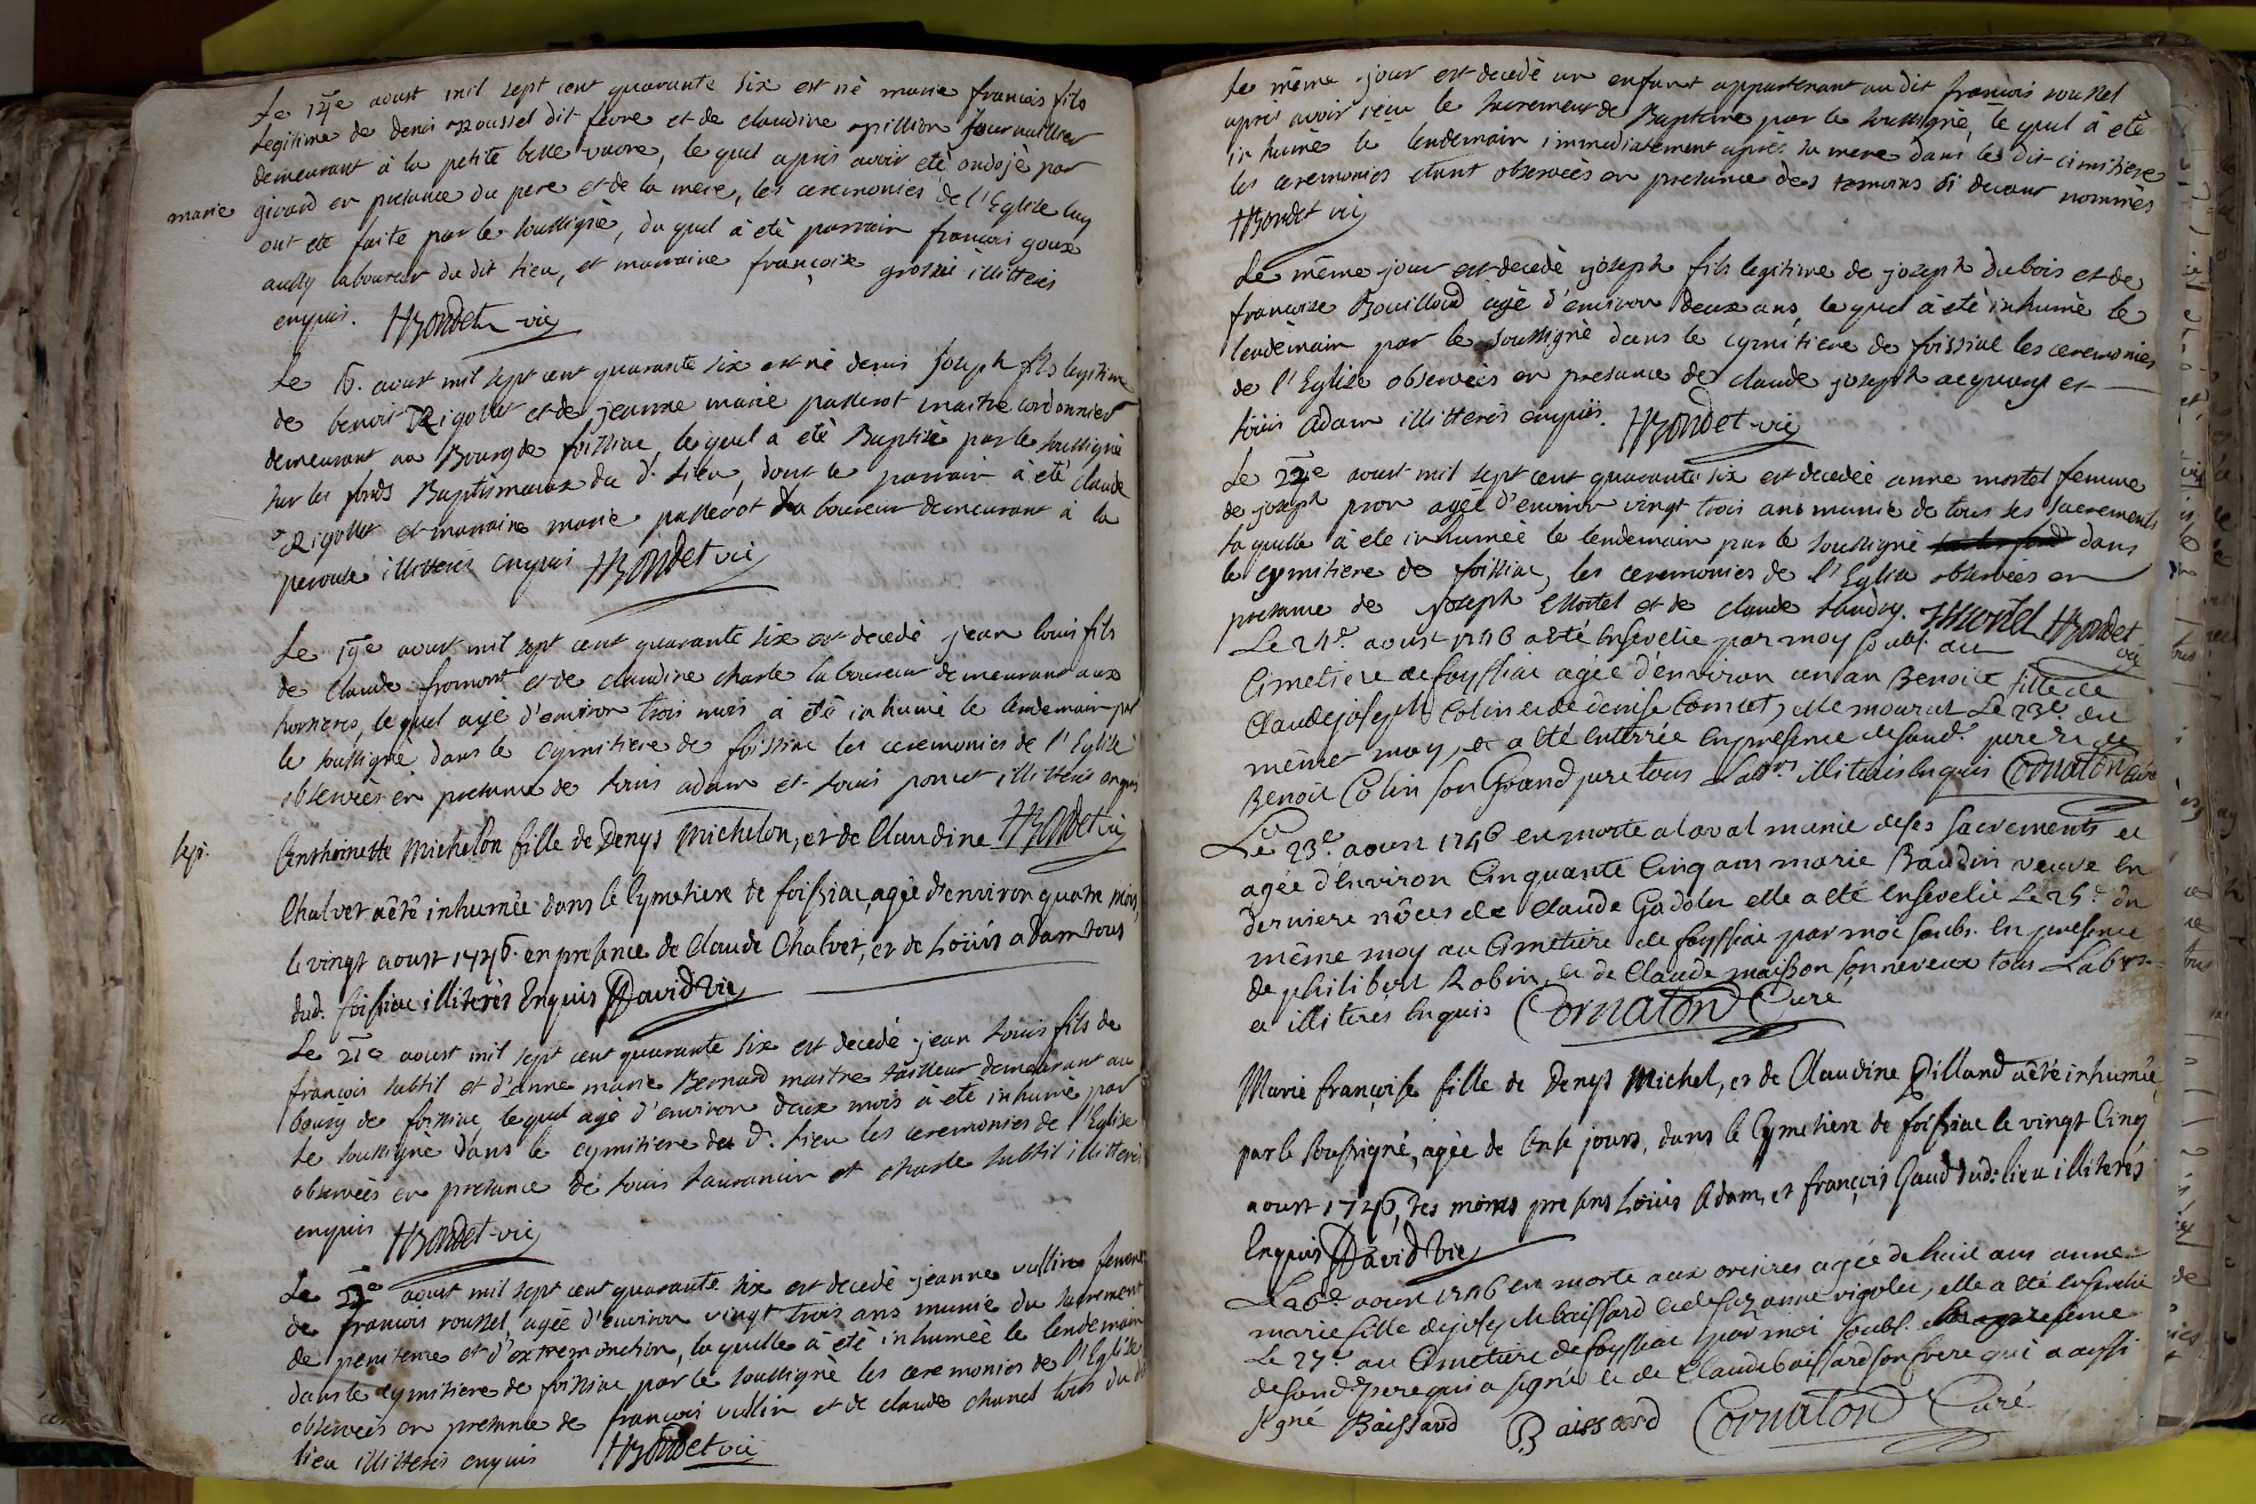 Le 14e aoust mil sept cent quarante six est né marie francois fils
legitime de denis Roussel dit fevre et de claudine pillion journaillier
demeurant à la petite belle vavre, le quel apres avoir eté ondojé par
marie girard en presance du pere et de la mere, les ceremonies de l'Eglise luy
ont eté faite par le soussigné, du quel à eté parrain francois goux
aussy laboureur du dit lieu, et marraine françoise illitterés
enquis. HBondet vic
Le 15. aoust mil sept cent quarante six est né denis joseph fils legitime
de benoit Rigollet et de jeanne marie passerot maitre cordonnier
demeurant au Bourg de foissiac, le quel a eté Baptisé par le soussigné
sur les fonds Baptismaux du d. Lieu, dont le parrain à eté claude
Rigollet et marraine marie passerot laboureur demeurant à la
peroute illitterés enquis HBondet vic
Le 19e aoust mil sept cent quarante six est decedé jean louis fils
de claude fromont et de claudine charle laboureur demeurant aux
hornieres, le quel agé d'environ trois mois à eté inhumé le lendemain par
le soussigné dans le cymitiere de foissiac les ceremonies de l'Eglise
observées en presance de louis adam et louis poncet illitterés enquis
HBondet vic
sep. Anthoinette Michelon fille de Denys Michelon, et de Claudine
Chalvet aêté inhumée dans le Cymetiere de foissiac, agée d'environ quatre mois,
le vingt aoust 1746. en presence de Claude Chalvet, et de Loüis adam tous
dud. foissiac illiterés Enquis David vic
Le 21e aoust mil sept cent quarante six est decedé jean Louis fils de
françois subtil et d'anne marie Bernard maitre tailleur demeurant au
bourg de foissiac, le quel agé d'environ deux mois à eté inhumé par
le soussigné dans le cymitiere du d. Lieu les ceremonies de l'Eglise
observées en presance de louis et charle subtil illitterés
enquis HBondet vic
Le aoust mil sept cent quarante six est decedé jeanne vullin femme
de francois roussel, agée d'environ vingt trois ans munie du sacrement
de penitence et d'extremonction, la quelle à eté inhumée le lendemain
dans le cymitiere de foissiac par le soussigné les ceremonies de l'Eglise
observées en presance de francois vullin et de claude chanel tous du dit
lieu illitterés enquis HBondet vic
Le même jour est decedé un enfant appartenant au dit francois roussel
apres avoir reçu le sacrement de Baptême par le soussigné, le quel à eté
inhumé le lendemain immediatement apres sa mere dans le dit cimitiere
les ceremonies etant observées en presance des temoins si devant nommés
HBondet vic
Le même jour est decedé joseph fils legitime de joseph dubois et de
francoise Bouilloud agé d'environ deux ans, le quel à eté inhumé le
lendemain par le soussigné dans le cymitiere de foissiac les ceremonies
de l'Eglise observées en presance de claude joseph et
loüis Adam illitterés enquis. HBondet vic
Le 22e aoust mil sept cent quarante six est decedée anne mortel femme
de joseph pron agée d'environ vingt trois ans munie de tous ses sacrements
la quelle à eté inhumée le lendemain par le soussigné dans
le cymitiere de foissiac, les ceremonies de l'Eglise observées en
presance de joseph Mortel et de claude HBondet
vic
Le 24e aoust 1746 a eté Ensevelie par moy soubs. au
Cimetiere de foyssiac agée d'environ un an Benoite fille de
Claude joseph Colin et de denise Comet, elle mourut Le 23e du
même moy, et a eté enterrée En presence de sond. pere et de
Benoit Colin son Grand pere tous Labrs. illiterés Enquis Cornaton Curé
Le 23e aoust 1746 est morte a laval munie de ses sacrements et
agée d'Environ Cinquante Cinq ans marie Baudin veuve En
derniere nôces de Claude Gadolet elle a eté Ensevelie Le 25e du
même moy au Cimetiere de foyssiac par moi soubs. En presence
de philibert Robin, et de Claude maisson son neveux tous Labrs.
et illiterés Enquis Cornaton Curé
Marie françoise fille de Denys Michel, et de Claudine Pilland aêté inhumée
par le soussigné, agée de onze jours, dans le Cymetiere de foissiac le vingt Cinq
aoust 1746, tesmoins presens Loüis Adam, et françois Gaud dud. lieu illiterés
Enquis David vic
Le 26e aoust 1746 est morte aux orieres agée de huit ans anne
marie fille de joseph baissard et de suzanne rigolet, elle a eté Ensevelie
Le 27e au Cimetiere de foyssiac par moi soubs. presence
de sond. pere qui a signé et de Claude baissard son frere qui a aussi
signé Baissard Baissard Cornaton Curé